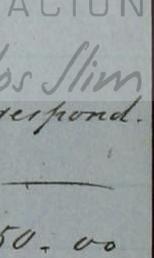 ACIÓN
os Slim
respond.
50. 00